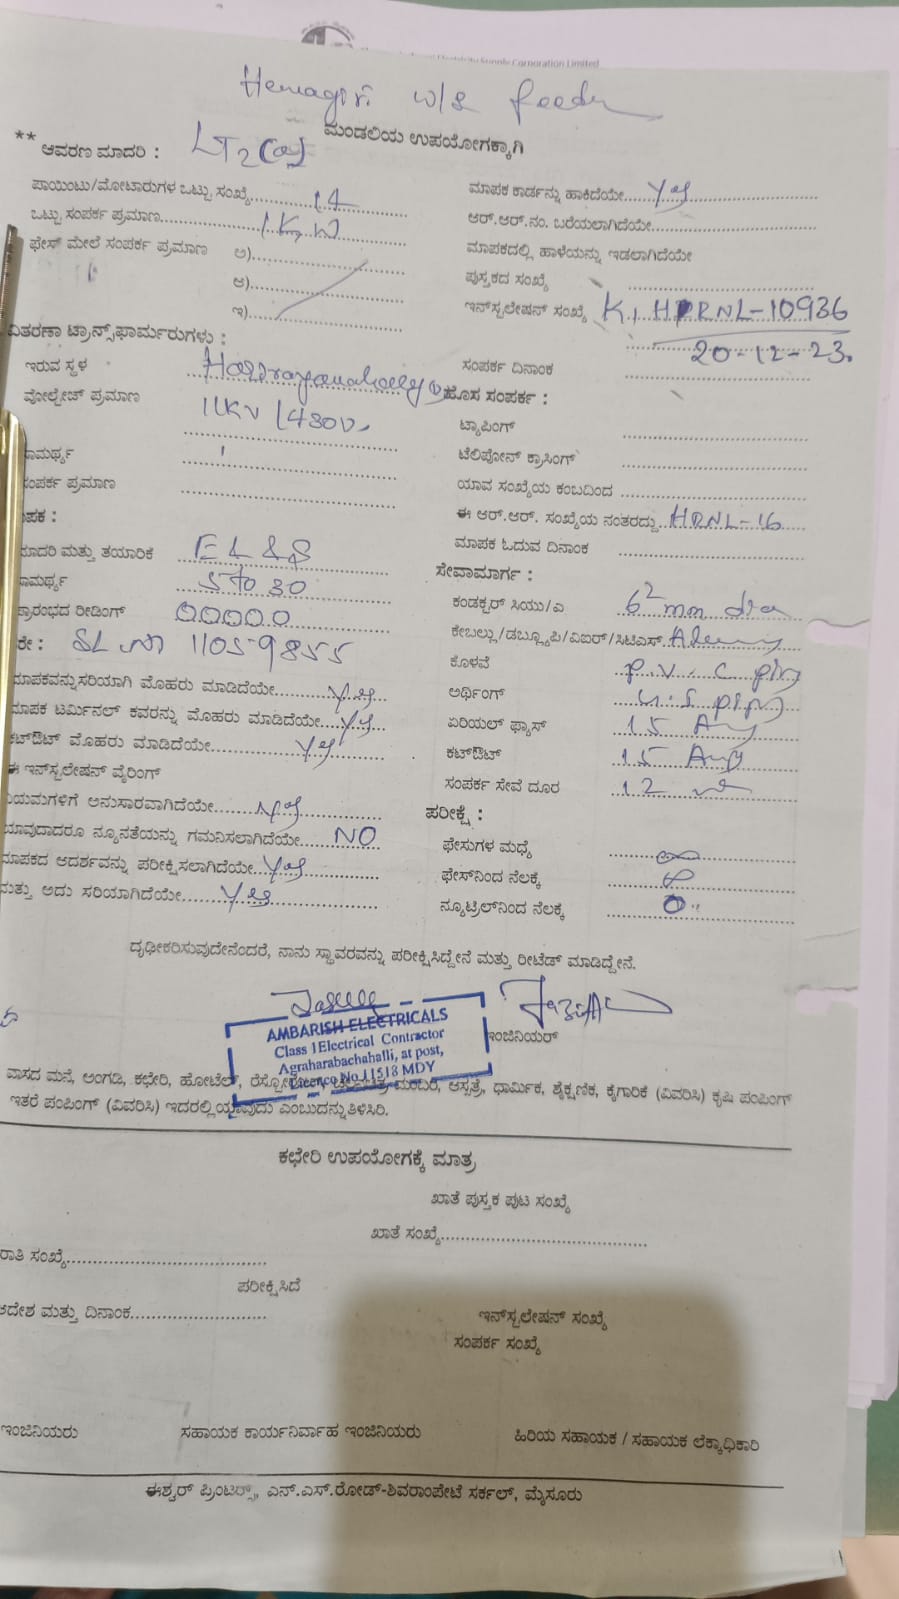 Electricity Supply Corporation Limited
Hemagiri w/s feeder
ಮಂಡಲಿಯ ಉಪಯೋಗಕ್ಕಾಗಿ
** ಆವರಣ ಮಾದರಿ : LT2(a)
ಪಾಯಿಂಟು/ಮೋಟಾರುಗಳ ಒಟ್ಟು ಸಂಖ್ಯೆ
ಒಟ್ಟು ಸಂಪರ್ಕ ಪ್ರಮಾಣ 1K.W
ಫೇಸ್ ಮೇಲೆ ಸಂಪರ್ಕ ಪ್ರಮಾಣ ಅ)
ಆ)
ಇ)
ವಿತರಣಾ ಟ್ರಾನ್ಸ್‌ಫಾರ್ಮರುಗಳು :
ಇರುವ ಸ್ಥಳ
ವೋಲ್ಟೇಜ್ ಪ್ರಮಾಣ 11KV /430V
ಾಮರ್ಥ್ಯ
ಸಂಪರ್ಕ ಪ್ರಮಾಣ
ಾಪಕ :
ಮಾದರಿ ಮತ್ತು ತಯಾರಿಕೆ
ಾಮರ್ಥ್ಯ 5 to 30
ಪ್ರಾರಂಭದ ರೀಡಿಂಗ್ 00000.0
ರೇ : SL no 11059855
ಮಾಪಕವನ್ನು ಸರಿಯಾಗಿ ಮೊಹರು ಮಾಡಿದೆಯೇ yes
ಮಾಪಕ ಟರ್ಮಿನಲ್ ಕವರನ್ನು ಮೊಹರು ಮಾಡಿದೆಯೇ yes
ಕಟ್‌ಔಟ್ ಮೊಹರು ಮಾಡಿದೆಯೇ yes
ಈ ಇನ್‌ಸ್ಟಲೇಷನ್ ವೈರಿಂಗ್
ನಿಯಮಗಳಿಗೆ ಅನುಸಾರವಾಗಿದೆಯೇ yes
ಯಾವುದಾದರೂ ನ್ಯೂನತೆಯನ್ನು ಗಮನಿಸಲಾಗಿದೆಯೇ NO
ಮಾಪಕದ ಆದರ್ಶವನ್ನು ಪರೀಕ್ಷಿಸಲಾಗಿದೆಯೇ yes
ಮತ್ತು ಅದು ಸರಿಯಾಗಿದೆಯೇ yes
ಮಾಪಕ ಕಾರ್ಡನ್ನು ಹಾಕಿದೆಯೇ yes
ಆರ್.ಆರ್.ನಂ. ಬರೆಯಲಾಗಿದೆಯೇ
ಮಾಪಕದಲ್ಲಿ ಹಾಳೆಯನ್ನು ಇಡಲಾಗಿದೆಯೇ
ಪುಸ್ತಕದ ಸಂಖ್ಯೆ
ಇನ್‌ಸ್ಟಲೇಷನ್ ಸಂಖ್ಯೆ HRNL-10936
20-12-23.
ಸಂಪರ್ಕ ದಿನಾಂಕ
ಹೊಸ ಸಂಪರ್ಕ :
ಟ್ಯಾಪಿಂಗ್
ಟೆಲಿಫೋನ್ ಕ್ರಾಸಿಂಗ್
ಯಾವ ಸಂಖ್ಯೆಯ ಕಂಬದಿಂದ
ಈ ಆರ್.ಆರ್. ಸಂಖ್ಯೆಯ ನಂತರದ್ದು HRNL-16
ಮಾಪಕ ಓದುವ ದಿನಾಂಕ
ಸೇವಾಮಾರ್ಗ :
ಕಂಡಕ್ಟರ್ ಸಿಯು/ಎ 6²mm dia
ಕೇಬಲ್ಲು/ಡಬ್ಲ್ಯೂಪಿ/ಎಐಆರ್/ಸಿಟಿಎಸ್
ಕೊಳವೆ P.V.C pipe
ಅರ್ಥಿಂಗ್ pipe
ಏರಿಯಲ್ ಫ್ಯೂಸ್ 15 Amp
ಕಟ್‌ಔಟ್ 15 Amp
ಸಂಪರ್ಕ ಸೇವೆ ದೂರ 12
ಪರೀಕ್ಷೆ :
ಫೇಸುಗಳ ಮಧ್ಯೆ ∞
ಫೇಸ್‌ನಿಂದ ನೆಲಕ್ಕೆ ∞
ನ್ಯೂಟ್ರಲ್‌ನಿಂದ ನೆಲಕ್ಕೆ 0
ದೃಢೀಕರಿಸುವುದೇನೆಂದರೆ, ನಾನು ಸ್ಥಾವರವನ್ನು ಪರೀಕ್ಷಿಸಿದ್ದೇನೆ ಮತ್ತು ರೀಟೆಡ್ ಮಾಡಿದ್ದೇನೆ.
AMBARISH ELECTRICALS
Class 1 Electrical Contractor
Agraharabachahalli, at post,
Licence No 11518 MDY
ಇಂಜಿನಿಯರ್
ವಾಸದ ಮನೆ, ಅಂಗಡಿ, ಕಛೇರಿ, ಹೋಟೆಲ್, ಆಸ್ಪತ್ರೆ, ಧಾರ್ಮಿಕ, ಶೈಕ್ಷಣಿಕ, ಕೈಗಾರಿಕೆ (ವಿವರಿಸಿ) ಕೃಷಿ ಪಂಪಿಂಗ್
ಇತರೆ ಪಂಪಿಂಗ್ (ವಿವರಿಸಿ) ಇದರಲ್ಲಿ ಯಾವುದು ಎಂಬುದನ್ನು ತಿಳಿಸಿರಿ.
ಕಛೇರಿ ಉಪಯೋಗಕ್ಕೆ ಮಾತ್ರ
ಖಾತೆ ಪುಸ್ತಕ ಪುಟ ಸಂಖ್ಯೆ
ಖಾತೆ ಸಂಖ್ಯೆ
ರಾತಿ ಸಂಖ್ಯೆ
ಪರೀಕ್ಷಿಸಿದೆ
ಆದೇಶ ಮತ್ತು ದಿನಾಂಕ
ಇನ್‌ಸ್ಟಲೇಷನ್ ಸಂಖ್ಯೆ
ಸಂಪರ್ಕ ಸಂಖ್ಯೆ
ಇಂಜಿನಿಯರು ಸಹಾಯಕ ಕಾರ್ಯನಿರ್ವಾಹ ಇಂಜಿನಿಯರು ಹಿರಿಯ ಸಹಾಯಕ / ಸಹಾಯಕ ಲೆಕ್ಕಾಧಿಕಾರಿ
ಈಶ್ವರ್ ಪ್ರಿಂಟರ್ಸ್, ಎನ್.ಎಸ್.ರೋಡ್-ಶಿವರಾಂಪೇಟೆ ಸರ್ಕಲ್, ಮೈಸೂರು